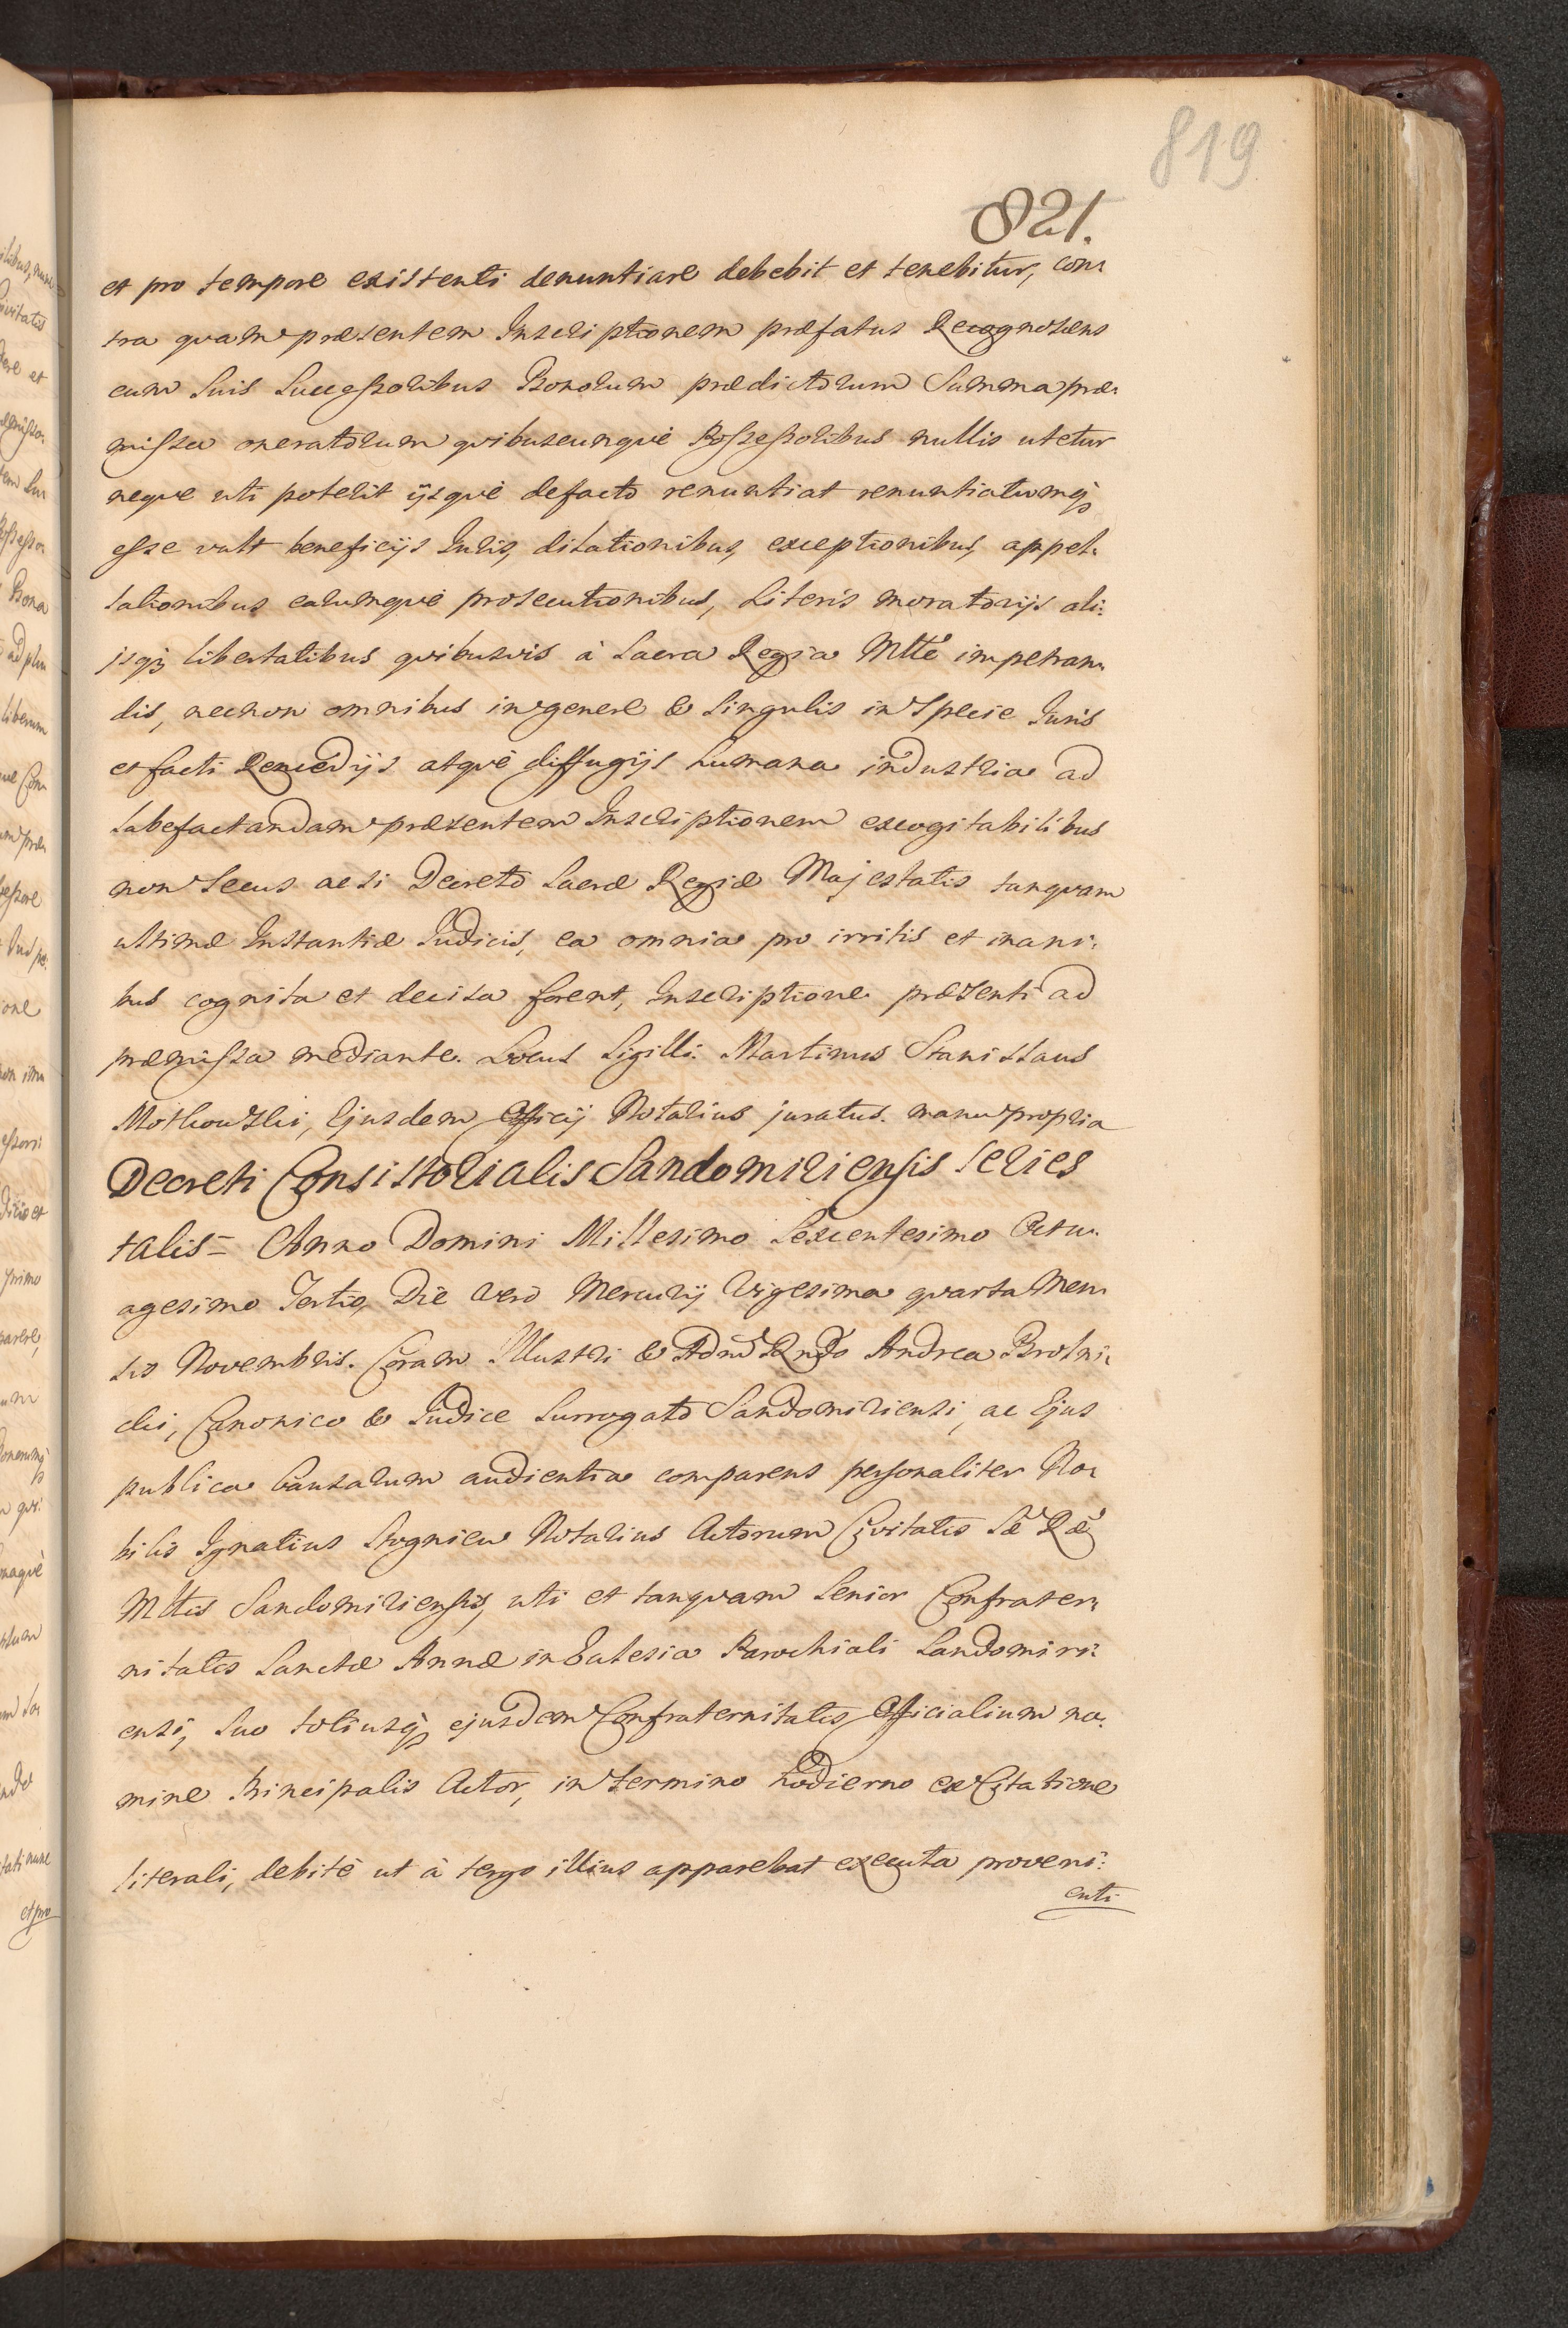 819
821.
et pro tempore existenti denuntiare debebit et tenebitur, con:
tra quam præsentem Inscriptionem præfatus Recognoscens
cum suis Successoribus Bonorum prædictorum Summa præ:
missa oneratorum quibuscunquè Possessoribus nullis utetur
neque uti poterit ijsquè defacto renuntiat renuntiatumq3
esse vult beneficijs Iuris, dilationibus, exceptionibus, appel:
lationibus earumquè prosecutionibus, Literis moratorijs ali:
jsq3 libertatibus quibusvis à Sacra Regia Mtte impetran:
dis, necnon omnibus in genere & singulis in Specie Iuris
et facti Remedijs atquè diffugijs humana industria ad
labefactandam præsentem Inscriptionem excogitabilibus
non secus ac si Decreto Sacræ Regiæ Majestatis tanquam
ultimæ Instantiæ Iudicis, ea omnia pro irritis et inani:
bus cognita et decisa forent, Inscriptione præsenti ad
præmissa mediante. Locus Sigilli. Martinus Stanislaus
Mothowski, Ejusdem Officij Notarius juratus. manu propria
Decreti Consistorialis Sandomiriensis Series
talis= Anno Domini Millesimo Sexcentesimo Octu:
agesimo Tertio, Die verò Mercurij Vigesima quarta Men:
sis Novembris. Coram Illustri & Admd Rndo Andrea Brotni:
cki, Canonico & Iudice Surrogato Sandomiriensi, ac Ejus
publica Causarum audientia comparens personaliter No:
bilis Ignatius Stogniew Notarius Actorum Civitatis Sæ Ræ
Mttis Sandomiriensis, uti et tanquam Senior Confrater:
nitatis Sanctæ Annæ in Eclesia Parochiali Sandomiri:
ensi, suo totiusq3 ejusdem Confraternitatis Officialium no:
mine Principalis Actor, in termino hodierno ex Citatione
literali, debitè ut à tergo illius apparebat executa proveni:
enti